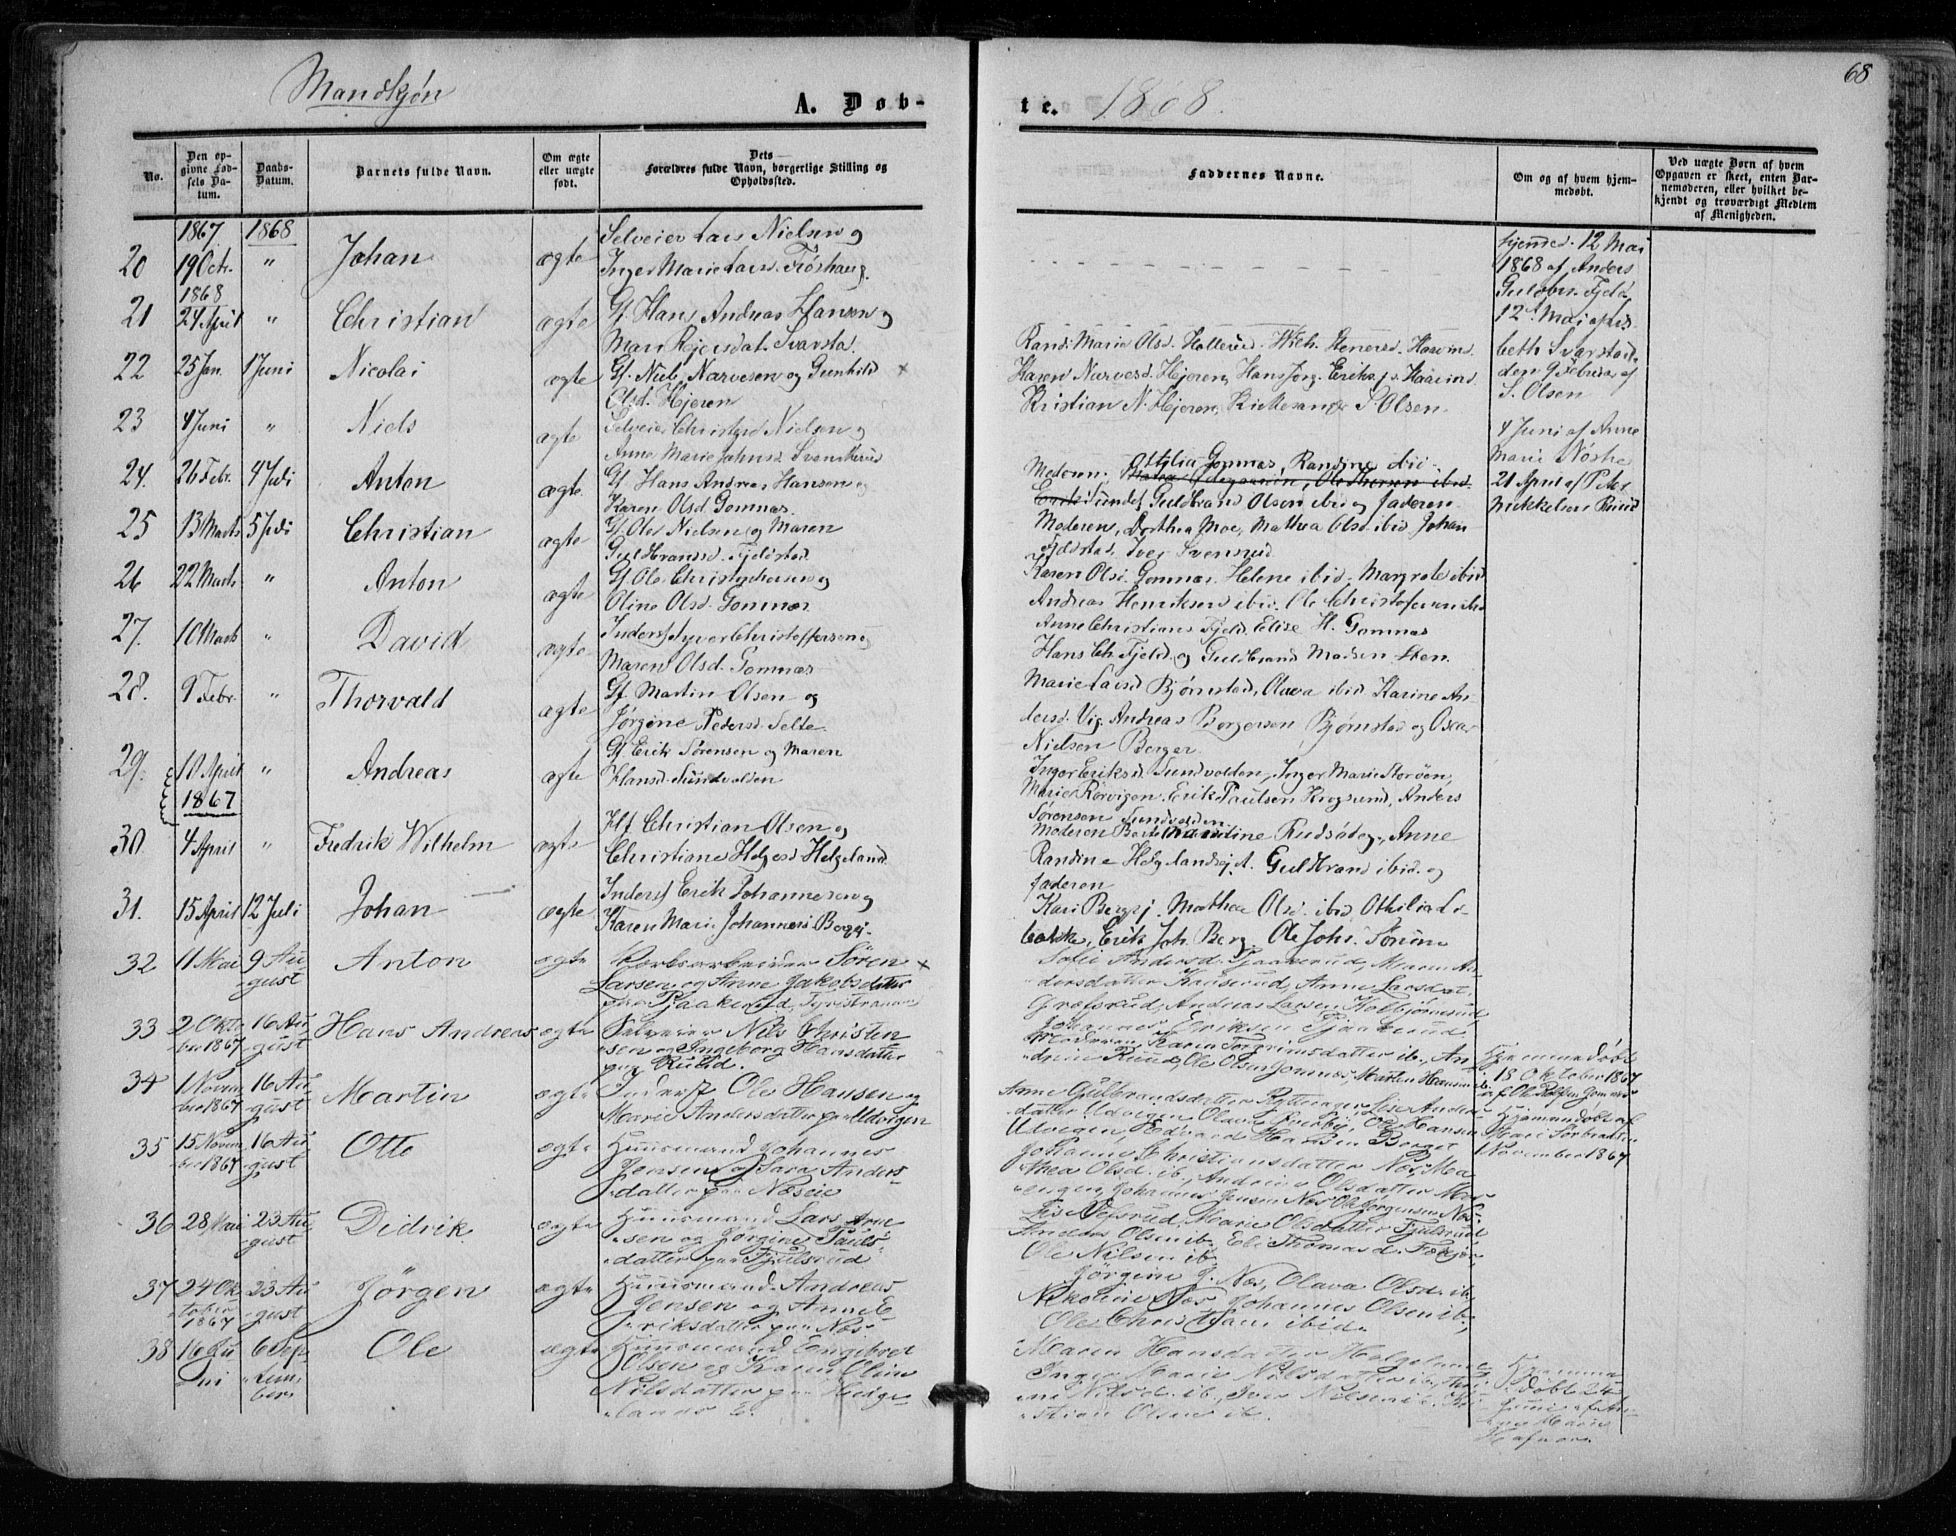 68
Mandkjøn
A. Døb-
te. 1868.
No.
Den opgivne Fødsels Datum.
Daabs-Datum.
Barnets fulde Navn.
Om ægte eller uægte født.
Dets Forældres fulde Navn, borgerlige Stilling og Opholdssted.
Faddernes Navne.
Om og af hvem hjemmedøbt.
Ved uægte Børn af hvem Opgaven er skeet, enten Barnemoderen, eller hvilket bekjendt og troværdigt Medlem af Menigheden.
1867 1868
20 19 Octr. " Johan ægte Selveier Lars Nielsen og
Inger Marie Larsd. Frøshaug.
hjemmed. 12 Mai
1868 af Anders
Guldbr. Fjeld
1868
21 24 April " Christian ægte Gf. Hans Andreas Hansen og
Mari Rejersdat. Svarsta.
12 Mai af
beth Svarstad
22 25 Jan. 1 Juni Nicolai ægte Gf. Niels Narvesen og Gunhild x
Olsd. Hjeren
Randi Marie Olsd.
Karen Narvesd. Hjeren, Hans Jørg. Eriks.
Kristian N. Hjeren, S. Olsen.
den 9 Februar af
S. Olsen
23 4 Juni " Niels ægte Selveier Nielsen og
Anne Marie Svenskerud
4 Juni af Anne
Marie
24. 26 Febr. 4 Juli Anton ægte Gf. Hans Andreas Hansen og
Karen Olsd. Gomnæs.
Moderen, Ottilia Gomnæs, Randine ibid.
Guldbrand Olsen ibid og faderen
21 April af Peter
Mikkelsen Ruud
25 13 Marts 5 Juli Christian ægte Gf. Ole Nielsen og Maren
Guldbrandsd. Fjeldstad
Moderen, Dorthea Moe, Mathea Olsd. ibid Johan
Fjeldstad, Iver Svensrud
26 22 Marts " Anton ægte Gf. Ole Christophersen og
Oline Olsd. Gomnæs
Karen Olsd. Gomnæs, Helene ibid, Margrete ibid
Andreas Henriksen ibid. Ole Christofersen ibid
27. 10 Marts " David ægte Inderst Syver Christoffersen og
Maren Olsd. Gomnæs
Anne Christians. Fjeld, Elise H. Gomnæs
Hans Ch. Fjeld og Guldbrand Madsen Sten
28. 9 Febr. " Thorvald ægte Gf Martin Olsen og
Jørgine Pedersd. Selte.
Marie Larsd Bjørnstad, Olava ibid Karine An-
dersd. Vig. Andreas Borgersen Bjørnstad og Oscar
Nielsen Berger
29. 10 April " Andreas ægte Gf Erik Sørensen og Maren
1867 Hansd. Sundvolden
Inger Eriksd. Sundvolden, Inger Marie Storøen,
Marie Rørvigen. Erik Paulsen, Anders
Sørensen Sundvolden
30 4 April " Fredrik Wilhelm ægte Hf Christian Olsen og
Christiane Helgesd Helgeland
Moderen, Anne
Randine Helgelandsej. Guldbrand ibid. og
faderen
31. 15 April 12 Juli Johan ægte Inderst Erik Johannesen og
Karen Marie Johannesd. Bergsej.
Kari Bergsej. Mathea Olsd. ibid, Othilia
Erik Joh. Berg. Ole Johs. Sørum
32 11 Mai 9 August Anton ægte Søren x
Larsen og Anne Jakobsdatter
paa Pjaakerud, Tyristranden
Sofie Andersd. Pjaakerud, Maren An-
dersdatter, Anne Larsdat.
Græfsrud, Andreas Larsen
Johannes Eriksen Pjaakerud
33 2 Oktober 1867 16 August Hans Andreas ægte Selveier Nils Christen-
sen og Ingeborg Hansdatter
paa Ruud.
Moderen, Karen Torgrimsdatter ib., An-
drine Ruud, Ole Olsen Gomnæs, Martin Hansen ib.
Hjemmedøbt
18 Oktober 1867
af Ole Gomnæs
34 1 November 1867 16 August Martin ægte Inderst Ole Hansen og
Marie Andersdatter paa Udvigen
Anne Gulbrandsdatter Rytterager, Lise Anders-
datter Udvigen, Olava, Ole Hansen
Udvigen, Edvard Hansen Berget
Hjemmedøbt af
Mari
November 1867
35 15 November 1867 16 August Otto ægte Huusmand Johannes
Jensen og Sara Anders-
datter paa Næseie
Johanne Kristiansdatter Næs, Ma-
thea Olsd. ib., Andrine Olsdatter
Johannes Jensen Næs Ole Jørgensen Næs
36 28 Mai 23 August Didrik ægte Huusmand Lars Arne-
sen og Jørgine Pauls-
datter paa Fjulsrud
Marie Olsdatter Fjulsrud
Anders Olsen ib. Eli Thomasd.
Ole Nilsen ib.
37 24 Oktober 1867 23 August Jørgen ægte Huusmand Andreas
Jensen og Anne E-
riksdatter paa Næs
Jørgine J. Næs, Olava Olsd. ib.
Nikoline Næs, Johannes Olsen ib.,
Ole Christians ibid.
38 16 Juni 6 September Ole ægte Huusmand Engebret
Olsen og Karen Oline
Nilsdatter paa Helge-
lands E.
Maren Hansdatter Helgeland
Inger Marie Nilsdatter ib.,
Nilsd. ib., Iver Nilsen ib. Kri-
stian Olsen ib.
Hjemme-
døbt 24
Juni af An-
ne Marie